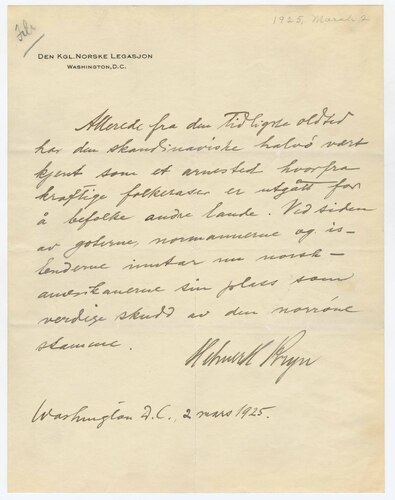 File
1925, March 2
DEN KGL. NORSKE LEGASJON
WASHINGTON, D.C.
Allerede fra den tidligste oldtid
har den skandinaviske halvö vært
kjent som et arnested hvorfra
kraftige folkeraser er utgått for
å befolke andre lande. Ved siden
av goterne, normannerne og is-
lenderne inntar nu norsk-
amerikanerne sin plass som
verdige skudd av den norröne
stamme.
Helmer H Bryn
Washington D.C., 2 mars 1925.